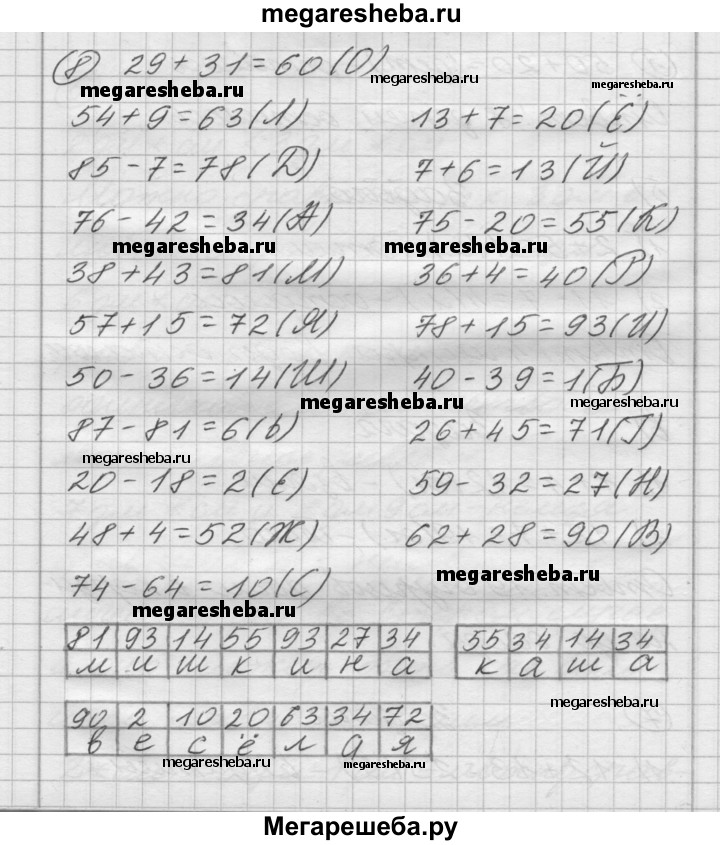 megaresheba.ru
8 29+31=60(О)
megaresheba.ru
megaresheba.ru
megaresheba.ru
54+9=63(Л) 13+7=20(Ё)
85-7=78(Д) 7+6=13(Й)
76-42=34(А) 75-20=55(К)
megaresheba.ru megaresheba.ru
38+43=81(М) 36+4=40(Р)
megaresheba.ru
57+15=72(Я) 78+15=93(И)
50-36=14(Ш) 40-39=1(Б)
megaresheba.ru megaresheba.ru
87-81=6(Ь) 26+45=71(Г)
megaresheba.ru
20-18=2(Е) 59-32=27(Н)
48+4=52(Ж) 62+28=90(В)
megaresheba.ru
74-64=10(С)
megaresheba.ru
81 93 14 55 93 27 34 55 34 14 34
м и ш к и н а к а ш а
megaresheba.ru
90 2 10 20 63 34 72
в е с ё л а я
megaresheba.ru megaresheba.ru
Мегарешеба.ру